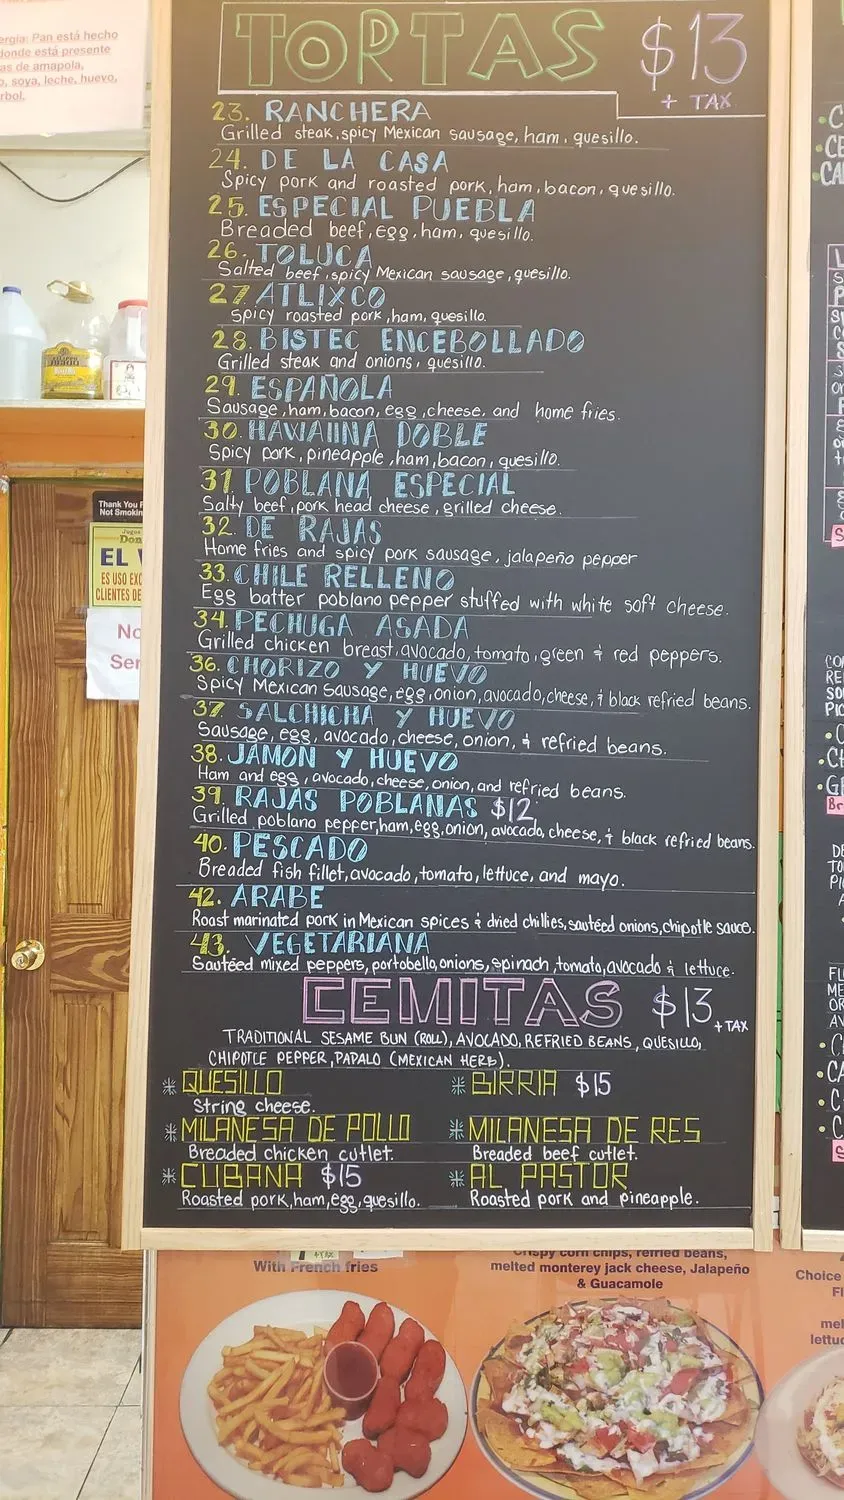 TORTAS $13
+ TAX
23. RANCHERA
Grilled steak, spicy Mexican sausage, ham, quesillo.
24. DE LA CASA
Spicy pork and roasted pork, ham, bacon, quesillo.
25. ESPECIAL PUEBLA
Breaded beef, egg, ham, quesillo.
26. TOLUCA
Salted beef, spicy Mexican sausage, quesillo.
27. ATLIXCO
Spicy roasted pork, ham, quesillo.
28. BISTEC ENCEBOLLADO
Grilled steak and onions, quesillo.
29. ESPAÑOLA
Sausage, ham, bacon, egg, cheese, and home fries.
30. HAWAIINA DOBLE
Spicy pork, pineapple, ham, bacon, quesillo.
31. POBLANA ESPECIAL
Salty beef, pork head cheese, grilled cheese.
32. DE RAJAS
Home fries and spicy pork sausage, jalapeño pepper
33. CHILE RELLENO
Egg batter poblano pepper stuffed with white soft cheese.
34. PECHUGA ASADA
Grilled chicken breast, avocado, tomato, green & red peppers.
36. CHORIZO Y HUEVO
Spicy Mexican sausage, egg, onion, avocado, cheese, & black refried beans.
37. SALCHICHA Y HUEVO
Sausage, egg, avocado, cheese, onion, & refried beans.
38. JAMON Y HUEVO
Ham and egg, avocado, cheese, onion, and refried beans.
39. RAJAS POBLANAS $12
Grilled poblano pepper, ham, egg, onion, avocado, cheese, & black refried beans.
40. PESCADO
Breaded fish fillet, avocado, tomato, lettuce, and mayo.
42. ARABE
Roast marinated pork in Mexican spices & dried chillies, sautéed onions, chipotle sauce.
43. VEGETARIANA
Sautéed mixed peppers, portobello, onions, spinach, tomato, avocado & lettuce.
CEMITAS $13 + TAX
TRADITIONAL SESAME BUN (ROLL), AVOCADO, REFRIED BEANS, QUESILLO,
CHIPOTLE PEPPER, PAPALO (MEXICAN HERB).
* QUESILLO
String cheese.
* BIRRIA $15
* MILANESA DE POLLO
Breaded chicken cutlet.
* MILANESA DE RES
Breaded beef cutlet.
* CUBANA $15
Roasted pork, ham, egg, quesillo.
* AL PASTOR
Roasted pork and pineapple.
With French fries
Crispy corn chips, refried beans,
melted monterey jack cheese, Jalapeño
& Guacamole
Choice
Pan está hecho
donde está presente
de amapola,
soya, leche, huevo,
Thank You
Not Smokin
EL
ES USO
CLIENTES DE
No